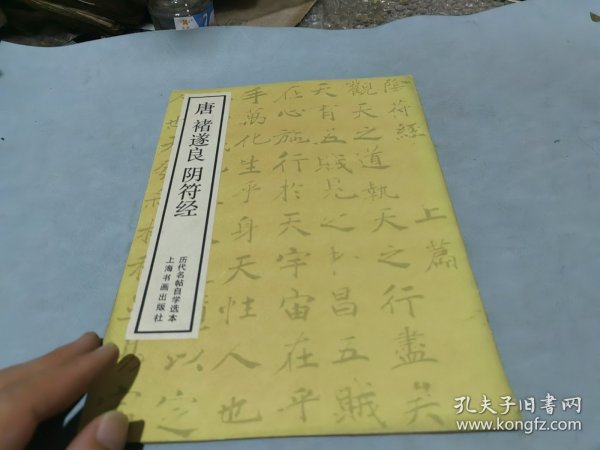 唐 褚遂良 阴符经
历代名帖自学选本
上海书画出版社
陰符經
上篇
觀天之道執天之行盡矣
天有五賊見之者昌五賊
在心施行於天宇宙在乎
手萬化生乎身天性人也
以定
孔夫子旧书网
www.kongfz.com